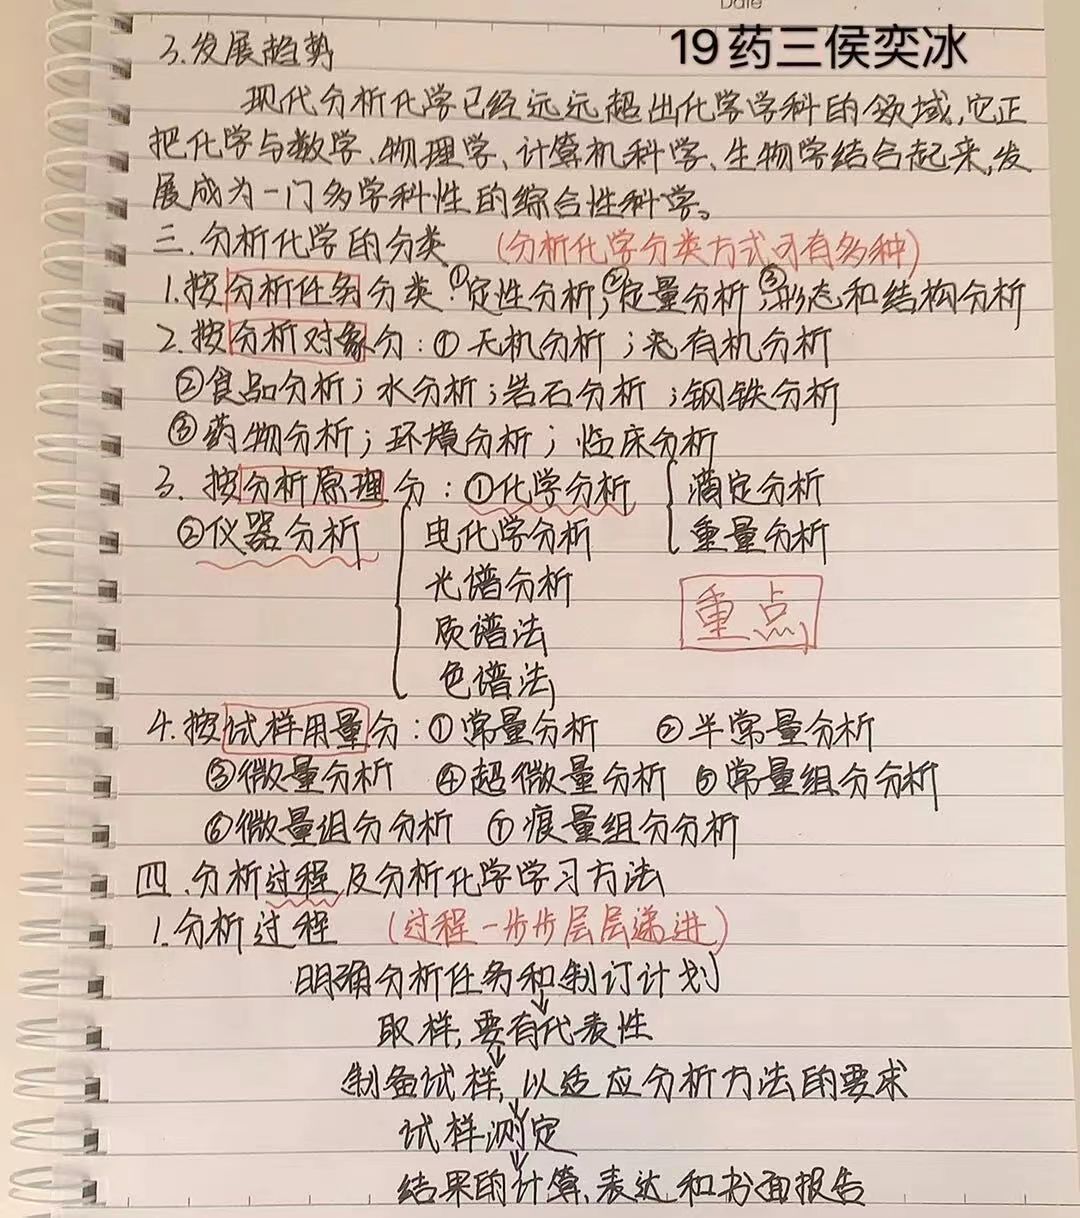 Date
19药三侯奕冰
3.发展趋势
现代分析化学已经远远超出化学学科的领域,它正
把化学与数学、物理学、计算机科学、生物学结合起来,发
展成为一门多学科性的综合性科学。
三.分析化学的分类 (分析化学分类方式可有多种)
1.按分析任务分类:①定性分析;②定量分析;③形态和结构分析
2.按分析对象分:①无机分析;有机分析
②食品分析;水分析;岩石分析;钢铁分析
③药物分析;环境分析;临床分析
3.按分析原理分:①化学分析 滴定分析
②仪器分析 电化学分析 重量分析
光谱分析
重点
质谱法
色谱法
4.按试样用量分:①常量分析 ②半常量分析
③微量分析 ④超微量分析 ⑤常量组分分析
⑥微量组分分析 ⑦痕量组分分析
四.分析过程及分析化学学习方法
1.分析过程 (过程一步步层层递进)
明确分析任务和制订计划
↓
取样,要有代表性
↓
制备试样,以适应分析方法的要求
↓
试样测定
↓
结果的计算、表达和书面报告